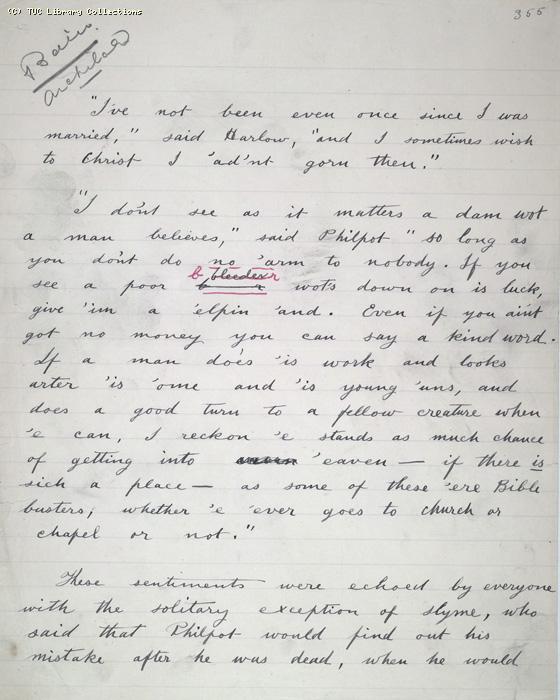 (C) TUC Library Collections
355
Bain
Archibald
"I've not been even once since I was
married," said Harlow, "and I sometimes wish
to Christ I 'ad'nt gorn then."
"I don't see as it matters a dam wot
a man believes," said Philpot "so long as
you don't do no 'arm to nobody. If you
b bleeder r
see a poor b r wots down on is luck,
give 'im a 'elpin 'and. Even if you ain't
got no money you can say a kind word.
If a man does 'is work and looks
arter 'is 'ome and 'is young 'uns, and
does a good turn to a fellow creature when
'e can, I reckon 'e stands as much chance
of getting into 'eaven — if there is
sich a place — as some of these 'ere Bible
busters, whether 'e 'ever goes to church or
chapel or not."
These sentiments were echoed by everyone
with the solitary exception of Slyme, who
said that Philpot would find out his
mistake after he was dead, when he would